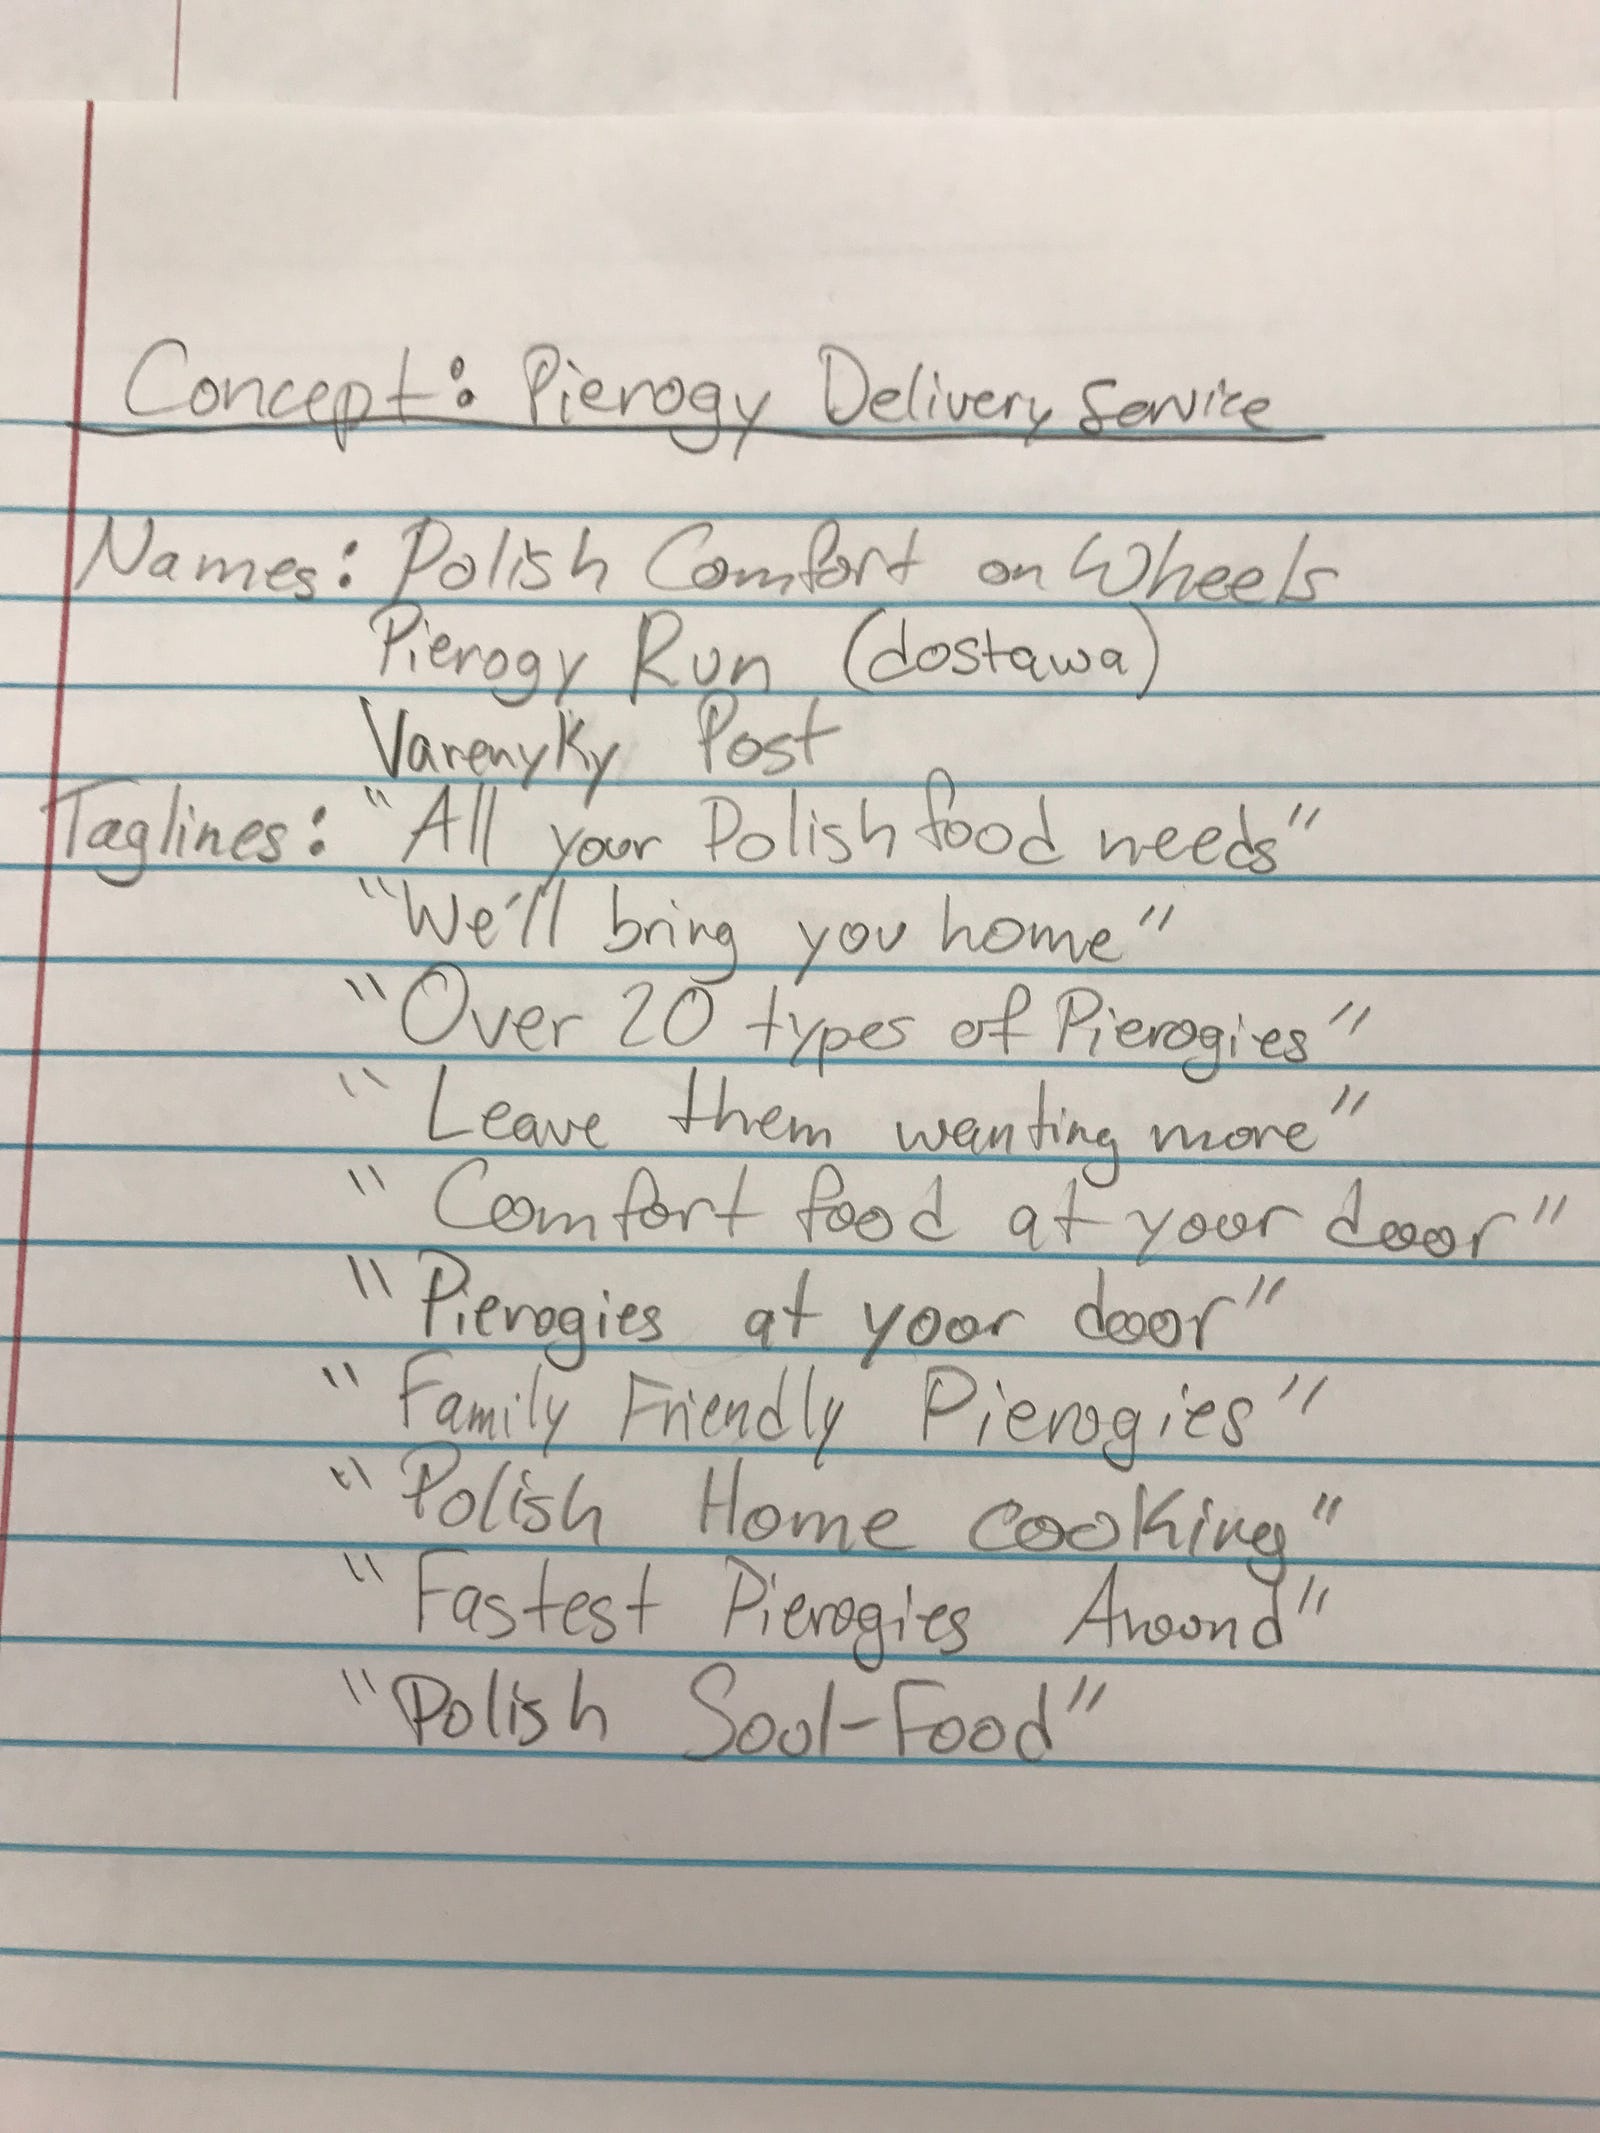 Concept: Pierogy Delivery Service
Names: Polish Comfort on Wheels
Pierogy Run (dostawa)
Varenyky Post
Taglines: "All your Polish food needs"
"We'll bring you home"
"Over 20 types of Pierogies"
"Leave them wanting more"
"Comfort food at your door"
"Pierogies at your door"
"Family Friendly Pierogies"
"Polish Home cooking"
"Fastest Pierogies Around"
"Polish Soul-Food"